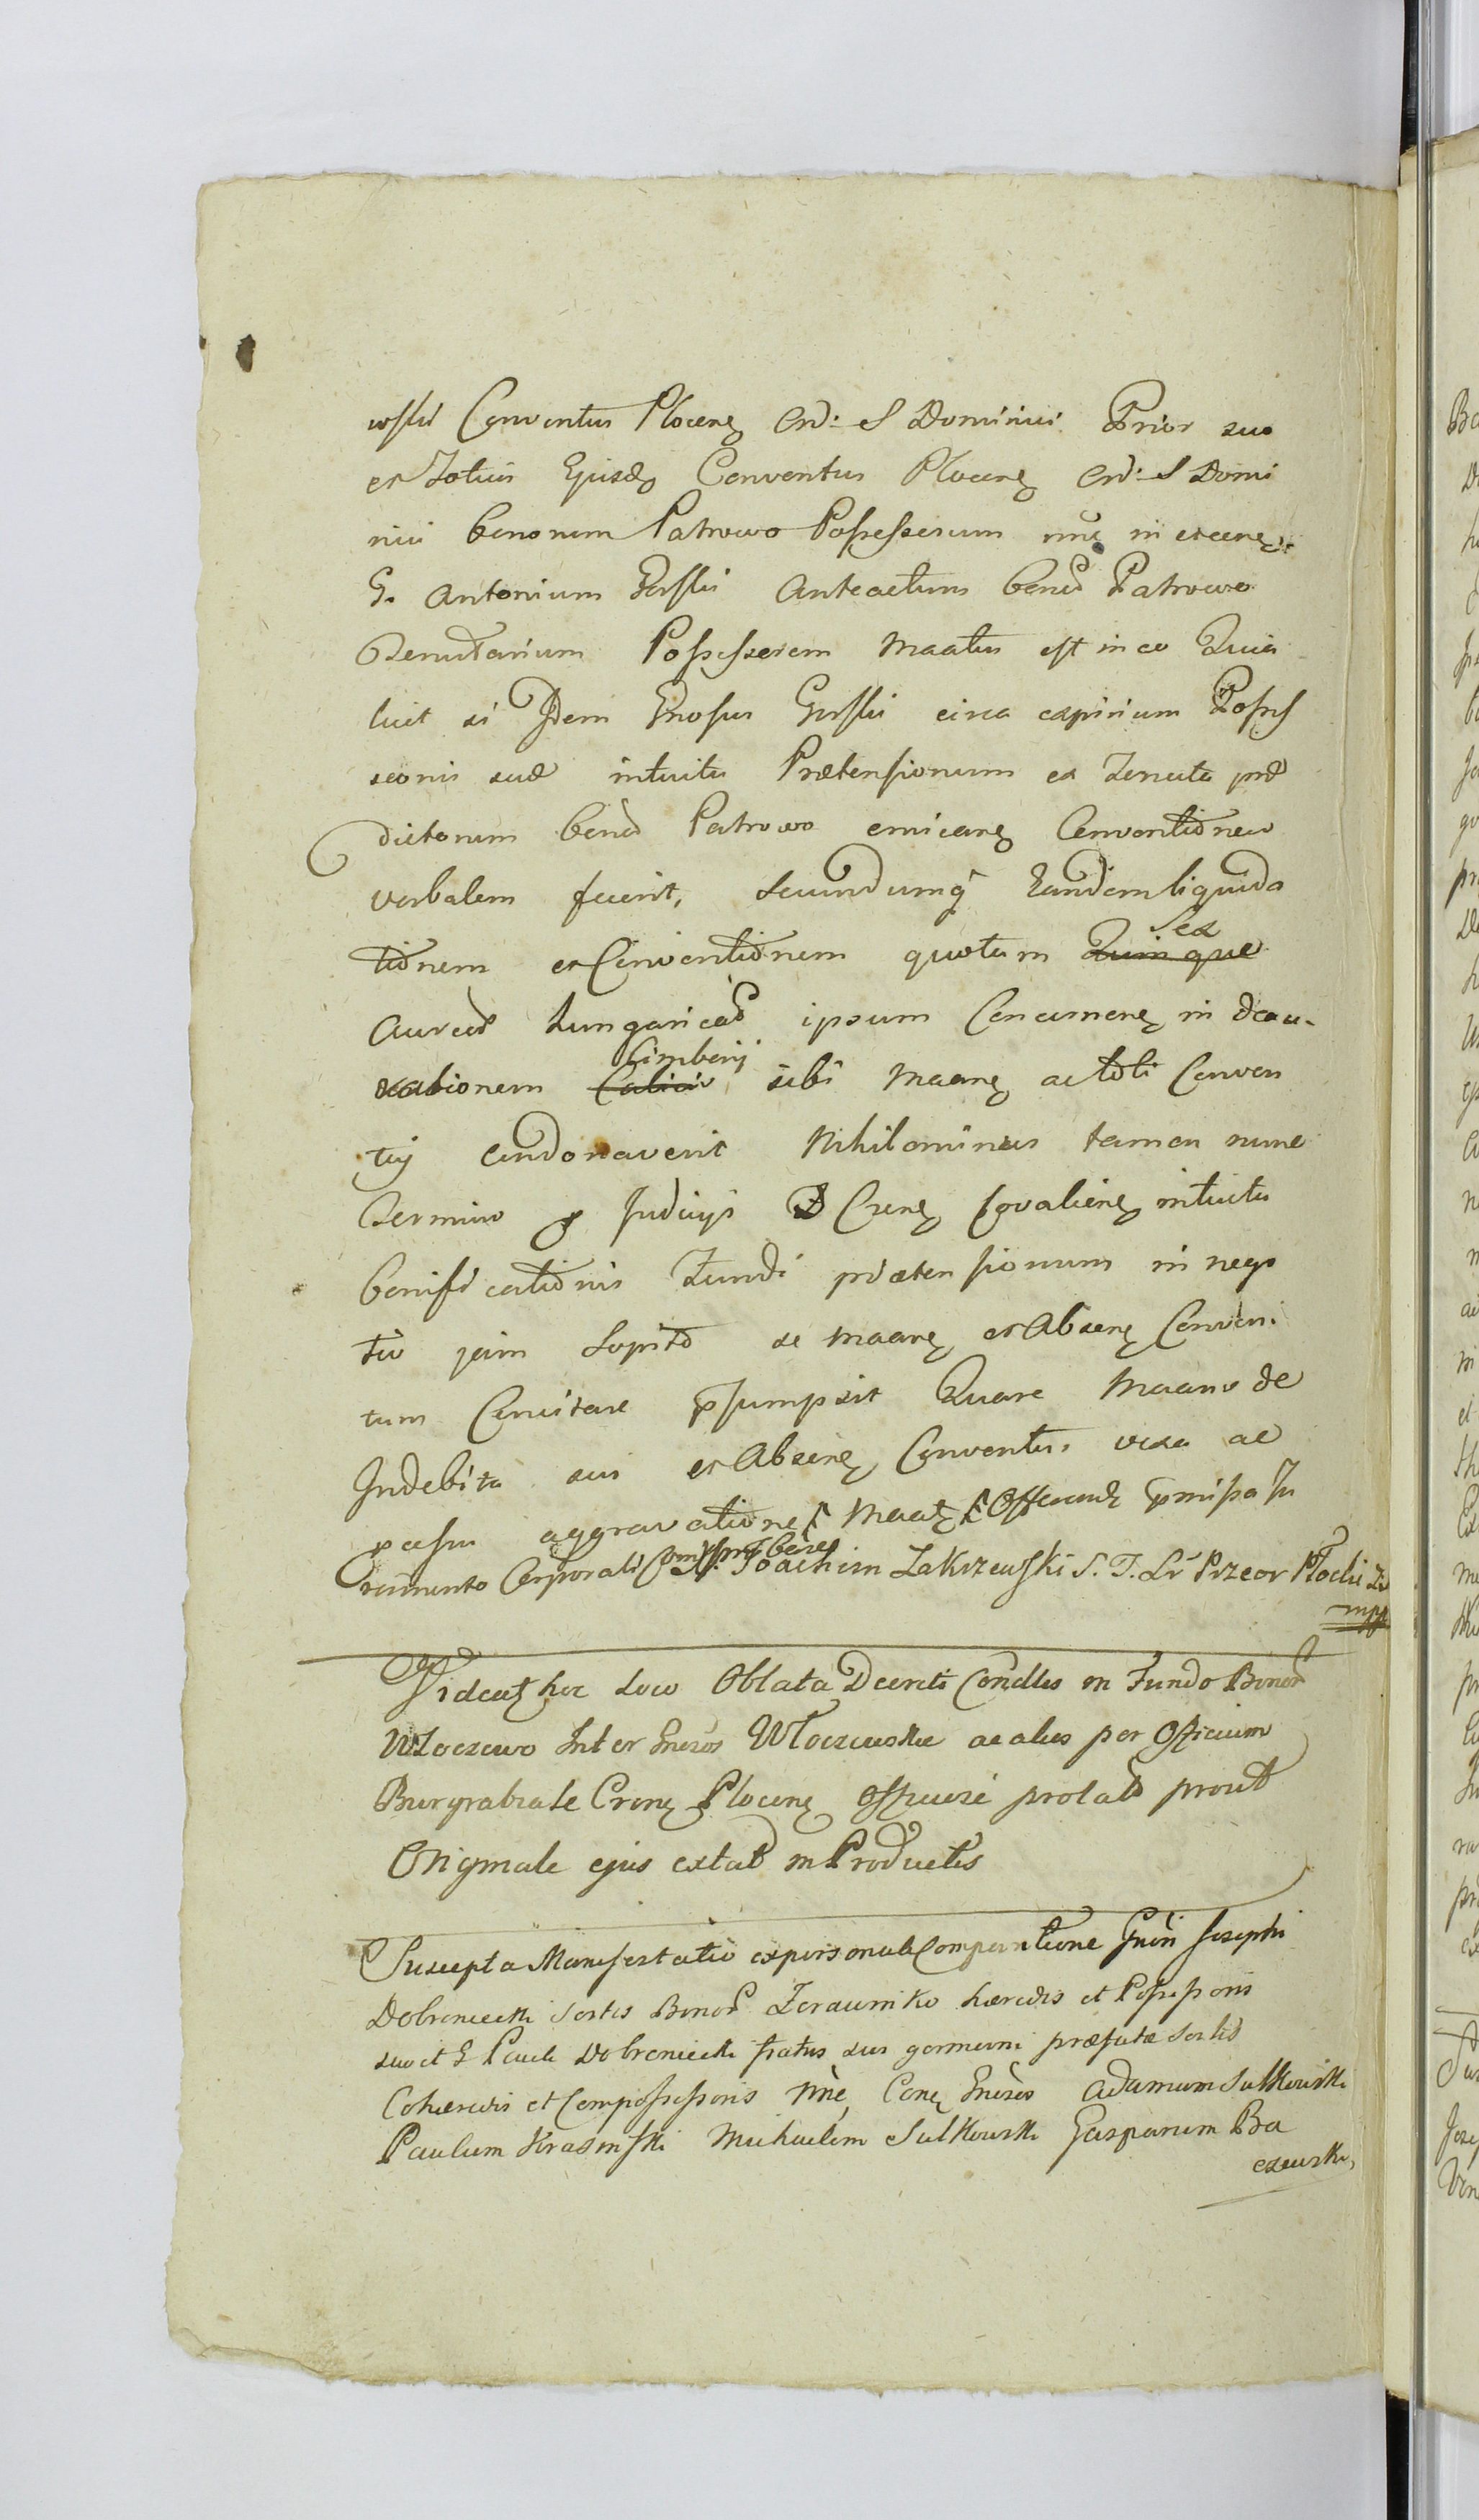 wski Conventus Plocen Ord: S Dominici Prior suo
et Totius Ejusd Conventus Plocen Ord: S Domi
nici bonorum Patrowo Possessorum nne in et cone
G. Antonium Gorski Anteactum bonor Patrowo
Tenutarium Possessorem Maatus est in eo Quia
licet si Idem Gnosus Gorski circa expirium Posses
sionis suæ intuitu Prætensionum ex Tenuta præ
dictorum bonor Patrowo emican Conventionem
verbalem fecerit, secundumq Eandem liquida
tionem et Conventionem quotam Quinque Sex
Aureos Hungaricos ipsum Concernen in deau-
rationem Calicis Cimborij sibi Maan ac toti Conven
tij condonaverit Nihilominus tamen nunc
Termino Judicijs Cren covalien intuitu
bonificationis Fundi prætensionum in nego
tio jam Sopito se Maane et Absen Conven-
tum Concitare psumpsit Quare Maans de
Indebita sui et Absen Conventus vexa ac
aggravatione Maat Offerend pmissa Ju
ramento Corporali Comprobare X. Joachim Zakrzewski S. T. Lr Przeor Płocki
mpp
Videat hoc Loco Oblata Decreti Condlis in Fundo Bonor
Włoczewo Inter Gnesos Włoczewskie ac alios per Officium
Burgrabiale Cren Plocen Officiose prolati prout
Originale ejus extat in Productis
Suscepta Manifestatio ex personali Comparitione Gnsi Josephi
Dobroniecki sortis Bonor Zoraumiko hæredis et Possessoris
suo et G Pauli Dobroniecki fratris sui germani præfatæ Sortis
Cohæredis et Compossessoris nne, Cone Gnesos Adamum Sulkowski
Paulum Krasinski Michaelem Sulkowski Gasparum Ba
czewski,